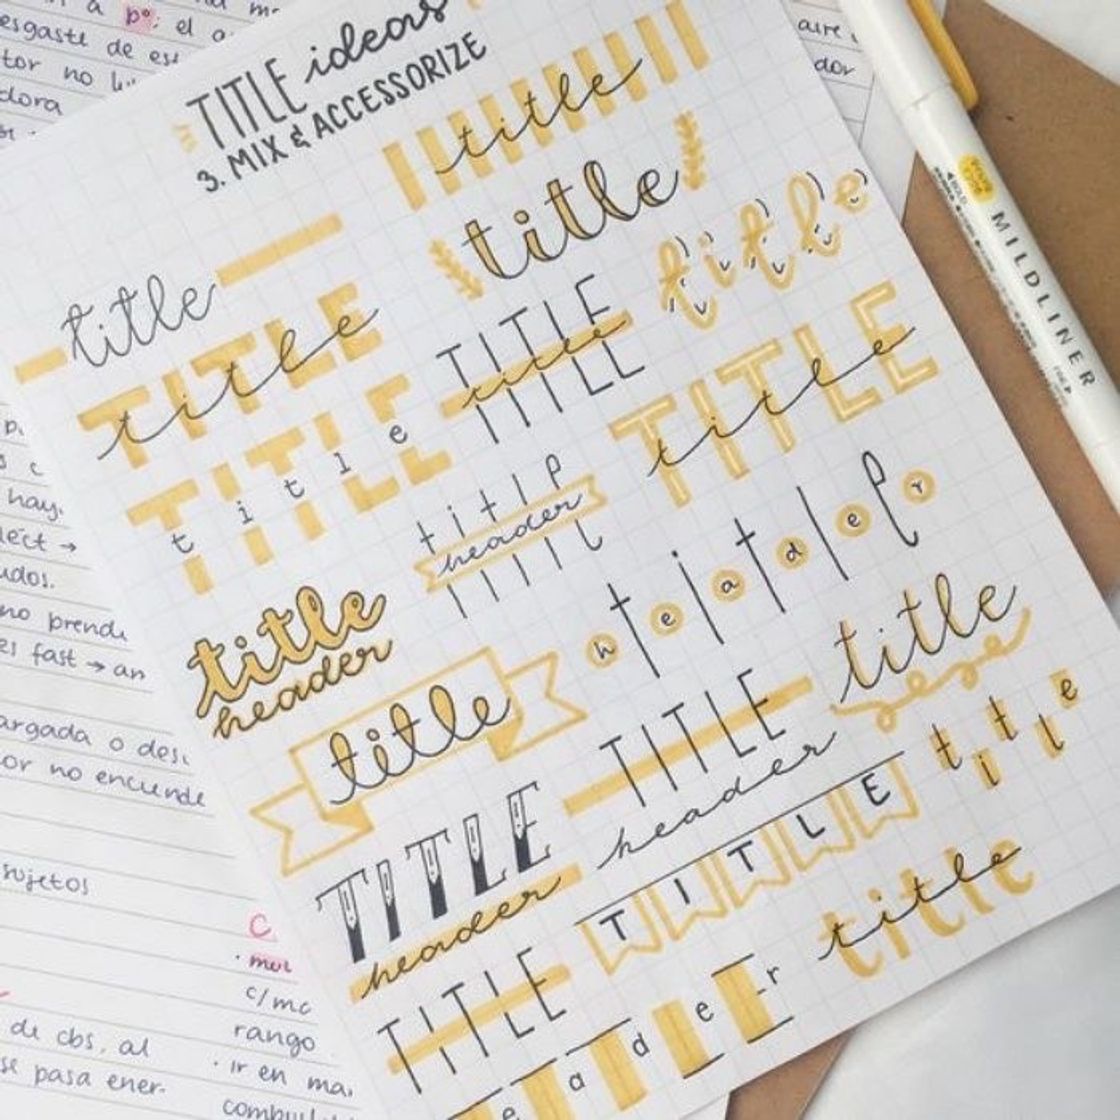 TITLE ideas
3. MIX & ACCESSORIZE
title
title
title
title
TITLE
title
TITLE
title
TITLE
title
TITLE
title
title
header
header
title
header
title
title
TITLE
header
title
TITLE
header
TITLE
title
TITLE
e a d e r
MILDLINER
a pº: el
esgaste de
tor no
dora
aire
dor
hay.
ect →
udos.
no prende
es fast → an
argada o
or no enciende
sujetos
C
c/mc
rango
de cbs, al
· ir en
se pasa ener-